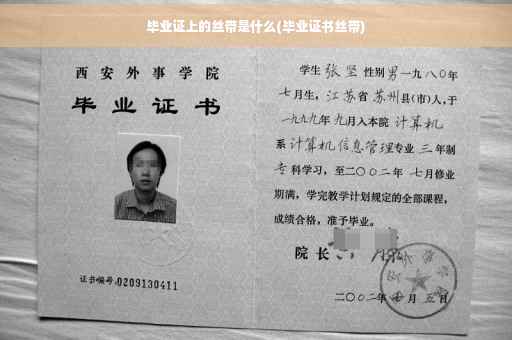 毕业证上的丝带是什么(毕业证书丝带)
西安外事学院
毕业证书
证书编号:0209130411
学生 张坚 性别男一九八0年
七月生,江苏省苏州县(市)人,于
一九九九年九月入本院 计算机
系计算机信息管理专业 三 年制
专科学习,至二〇〇二年 七月修业
期满,学完教学计划规定的全部课程,
成绩合格,准予毕业。
院长
二〇〇二年 月五日